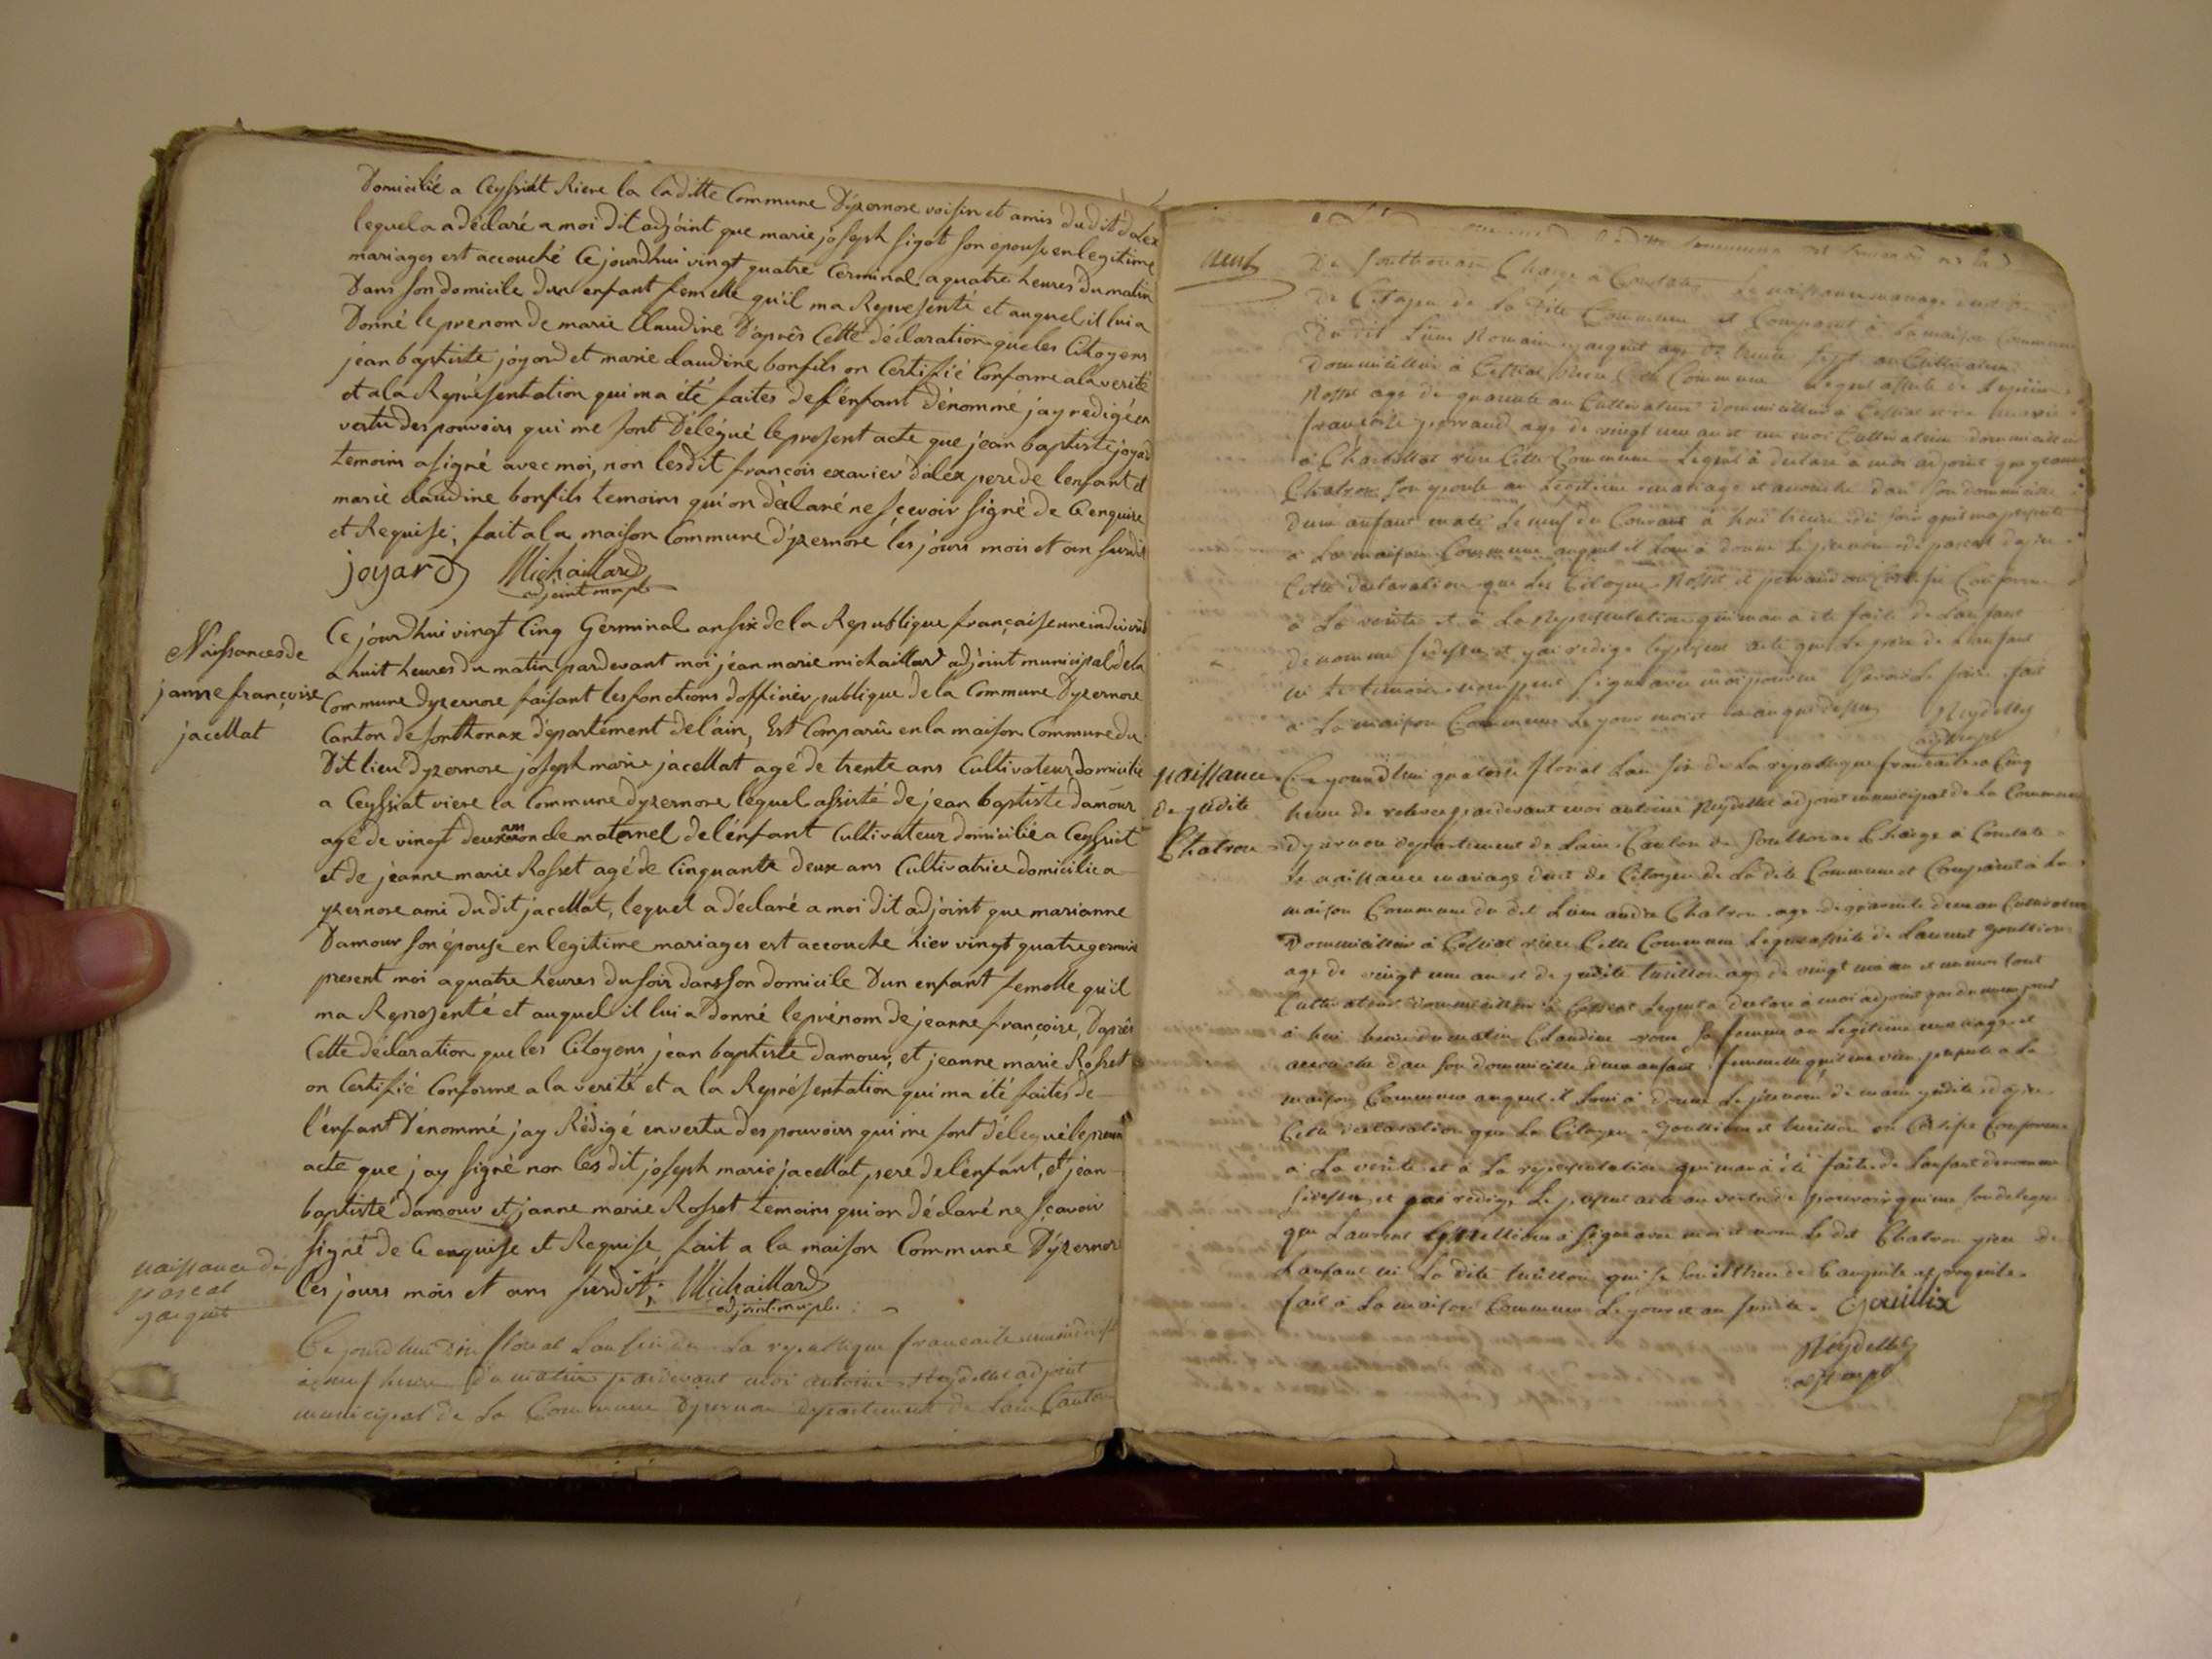 Domicilié a Ceyssiat Riere la laditte Commune Dyzernore voisin et amis dudit dalex
lequel a adéclaré a moi dit adjoint que marie joseph sigot son epouse en legitime
mariages est accouché Cejourdhui vingt quatre Cerminal a quatre heures du matin
Dans son domicile dun enfant femelle qu'il ma Representé et auquel il lui a
Donné leprenom de marie Claudine D'aprês Cette déclaration que les Citoyens
jean baptiste joyard et marie claudine bonfils on Certifié Conforme a la verité
et a la Représentation qui ma été faites de l'énfant dénommé jay redigé en
vertu des pouvoirs qui me sont Délégué le present acte que jean baptiste joyard
temoins a signé avec moi, non lesdit françois exavier dalex pere de lenfant et
marie claudine bonfils temoins qui on déclaré ne scevoir signé de Cenquire
et Requise; fait a la maison Commune d'yzernore les jours mois et an susdit
joyard Michaillard
adjoint mupl
Naissances de
janne françoise
jacellat
Ce jourdhui vingt Cinq Germinal an six de la Republique française une indivis
a huit heures du matin pardevant moi jean marie michaillard adjoint municipal dela
Commune dyzernore faisant les fonctions dofficier publique de la Commune Dyzernore
Canton de sonthonax département de l'ain, Est Comparu en la maison Commune du
Dit lieu dyzernore joseph marie jacellat agé de trente ans Cultivateur domicilié
a Ceyssiat riere la Commune dyzernore lequel assisté de jean baptiste damour
agé de vingt deux ans oncle maternel de lénfant Cultivateur domicilié a Ceyssiat
et de jéanne marie Rosset agé de Cinquante deux ans Cultivatrice domicilié a
yzernore ami dudit jacellat, lequel a déclaré a moi dit adjoint que marianne
Damour son épouse en legitime mariages est accouche hier vingt quatre germinal
present moi a quatre heures du soir dans son domicile Dun enfant femelle qu'il
ma Representé et auquel il lui a donné le prénom de jeanne françoise, D'après
Cette déclaration que les Citoyens jean baptiste damour, et jeanne marie Rosset
on Certifié Conforme a la verité et a la Représentation qui ma été faites de
l'énfant Dénommé jay Rédigé en vertu des pouvoirs qui me sont délegué le present
acte que jay signé non les dit joseph marie jacellat, pere de lenfant, et jean
baptisté damour et janne marie Rosset temoins qui on déclaré ne sçavoir
signé de Ce enquise et Requise, fait a la maison Commune Dyzernor
les jours mois et ans susdit. Michaillard
adjoint mupl.
naissance de
pascal
jacquit
Ce jourdhui floreal Lan six de La republique francaise
a neuf heure du matin pardevant moi antoine Neydellet adjoint
municipal de La Commune Dyzernon departement de Lain Canton
neuf
De Southonax Charge à Constater Le naissance mariage
De Citoyen de La Dite Commune et Comparut à La maison Commune
Du dit Lieu Romain age de trente sept an Cultivateur
Dommicillier à Cessiat riere Cette Commune Lequel assiste de
Rosset age de quarante an Cultivateur dommicillier à Cessiat et de marie
francoise perraud age de vingt un an et un moi Cultivateur dommicillier
à riere Cette Commune Lequel à declare à moi adjoint que jeanne
Chatron son epouse an Legitime mariage et acouche dan son dommicille
dun anfant male Le neuf du Courant à huit heure du soir quil ma presente
à La maison Commune auquel il Lui à donne Le prenom de pascal dapre
Cette declaration que Les Citoyen Rosset et perraud on Certifie Conforme
à La verite et à La Representation qui man a ete faite de Lanfant
denomme sidessu et jai redige le present acte que Le pere de Lanfant
ni Le temoin non peut signe avec moi pour ne Savoir Le faire fait
à La maison Commune Le jour mois et an que dessu Neydellet
adjt mupl
naissance
de judite
Chatron
Ce jourdhui quatorse florial Lan six de La republique francaise a Cinq
heure de releve pardevant moi antoine Neydellet adjoint municipal de La Commune
dyzernon departement de Lain Canton de Southonax Charge à Constate
Le naissance mariage de Citoyen de La dite Commune et Comparut à La
maison Commune du dit Lieu andre Chatron age de quarante deux an Cultivateur
Dommicillier à Cessiat riere Cette Commune Lequel assiste de Laurent
age de vingt un an et de judite tusillon age de vingt un an et un moi tout
Cultivateur dommicillier à Cessiat Lequel à declare à moi adjoint
à huit heure du matin Claudine sa femme an Legitime mariage et
acouche dan son dommicille dun anfant femmelle quil me vien presente à La
maison Commune auquel il Lui à donne Le prenom de marie judite dapre
Cette declaration que Le Citoyen et tusillon on Certifie Conforme
à La verite et à La representation qui man à été faite de Lanfant denomme
sidessu et jai redige Le present acte an vertu de pouvoir qui me son delegue
que Laurent à signe avec moi et non Le dit Chatron pere de
Lanfant ni La dite tusillon de Ce anquite et requite
fait à La maison Commune Le jour et an susdite. Gouillix
Neydellet
adjt mupl